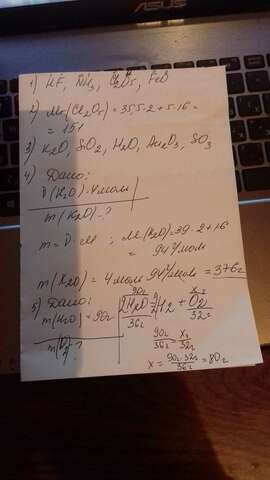 1) HF, NH₃, Cl₂O₅, FeO
2) Mr(Cl₂O₅) = 35,5·2 + 5·16 =
= 151
3) K₂O, SiO₂, H₂O, Au₂O₃, SO₃
4) Дано:
ν(K₂O) = 4 моль
m(K₂O) - ?
m = ν·M ; M(K₂O) = 39·2+16
= 94 г/моль
m(K₂O) = 4 моль · 94 г/моль = 376 г
5) Дано:
m(H₂O) = 90 г
m(O₂) - ?
90г x
2H₂O = 2H₂ + O₂
36г 32г
90г/36г = x/32г
x = 90г·32г/36г = 80г